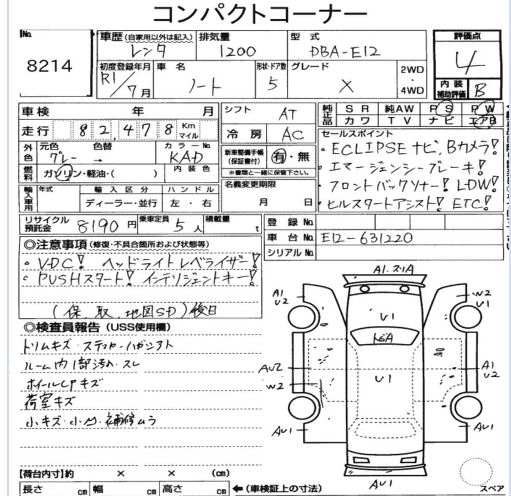 コンパクトコーナー
No. 8214
車歴 (自家用以外は記入) レンタ
排気量 1200
型式 DBA-E12
評価点 4
初度登録年月 R1/7月
車名 ノート
形状・ドア数 5
グレード X
2WD・4WD
内装補助評価 B
車検 年 月
シフト AT
純正品 SR 純AW PS PW
カワ TV ナビ エアB
走行 82,478 Km マイル
冷房 AC
セールスポイント
・ECLIPSEナビ、Bカメラ!
・エマージェンシーブレーキ!
・フロントバックソナー! LDW!
・ヒルスタートアシスト! ETC!
外色 元色 グレー → 色替
カラーNo. KAD
新車整備手帳(保証書付) 有・無
※書類と一緒に保管して下さい。
燃料 ガソリン・軽油・( )
内装色
名義変更期限 月 日
輸入車用 年式 輸入区分 ハンドル
ディーラー・並行 左・右
リサイクル預託金 8190円
乗車定員 5人
積載量 t
登録No.
車台No. E12-631220
シリアルNo.
◎注意事項 (修復・不具合箇所および状態等)
・VDC! ヘッドライトレベライザー!
・PUSHスタート! インテリジェントキー!
(保、取、地図SD)後日
◎検査員報告 (USS使用欄)
トリムキズ
ルーム内1部汚れ・スレ
ホイールCPキズ
荷室キズ
小キズ・小凹・補修ムラ
A1
A1
U2
W2
U1
A1
AU2
W2
U1
A1
U2
AU1
AU1
AU1
スペア
【荷台内寸】約 × × (cm)
長さ cm 幅 cm 高さ cm ←(車検証上の寸法)